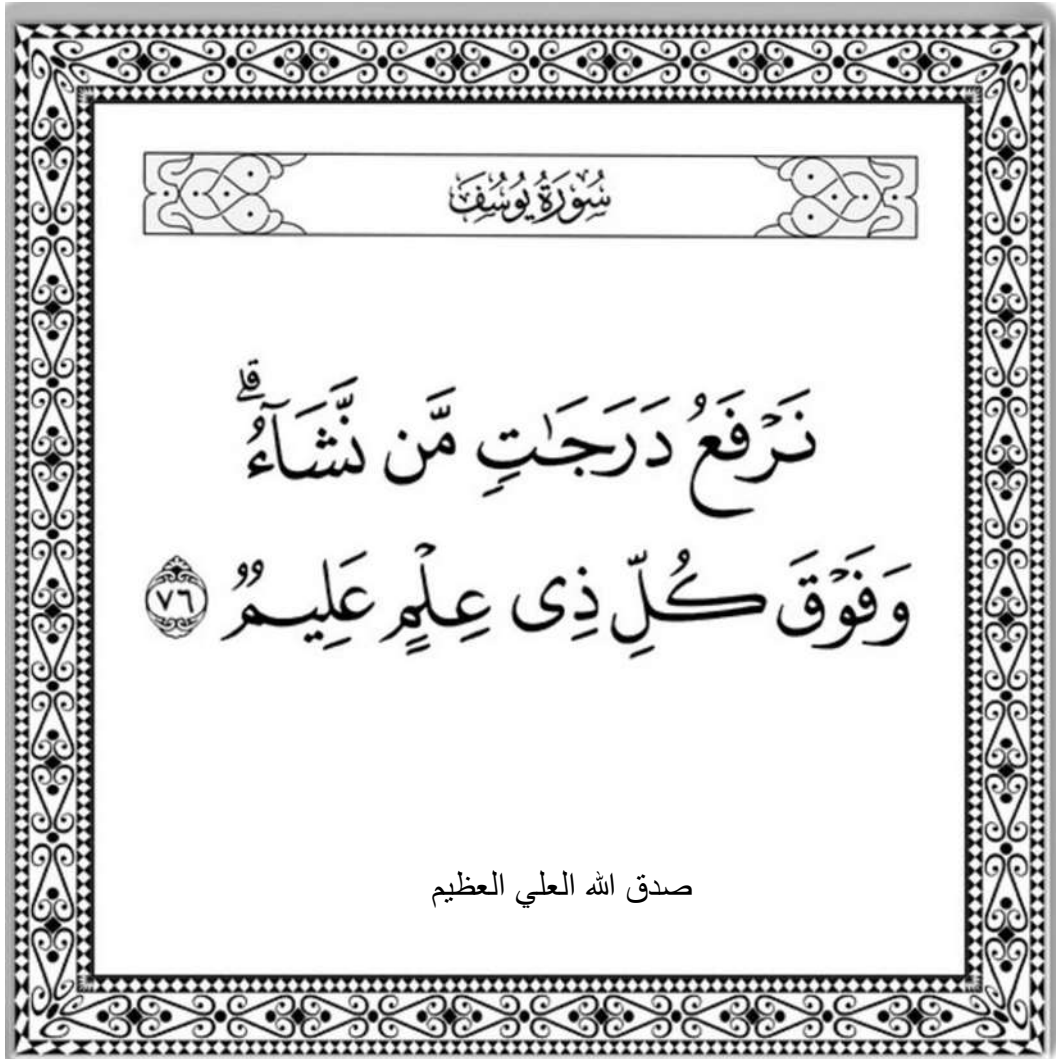 سُورَةُ يُوسُفَ
نَرْفَعُ دَرَجَٰتٍ مَّن نَّشَآءُ ۗ
وَفَوْقَ كُلِّ ذِى عِلْمٍ عَلِيمٌ ٧٦
صدق الله العلي العظيم